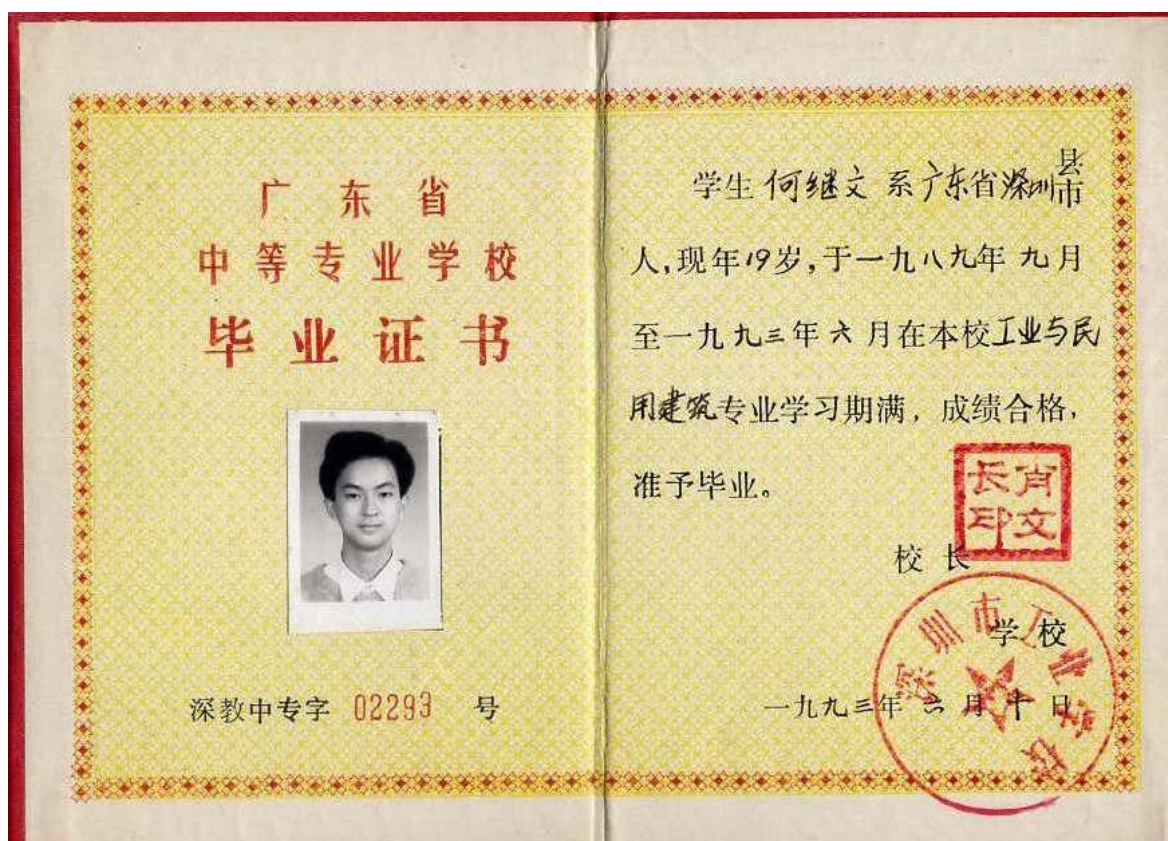 广东省
中等专业学校
毕业证书
深教中专字 02293 号
学生何继文系广东省深圳县市
人,现年19岁,于一九八九年九月
至一九九三年六月在本校工业与民
用建筑专业学习期满,成绩合格,
准予毕业。
肖文长印
校长
学校
深圳市工业学校
一九九三年六月十日